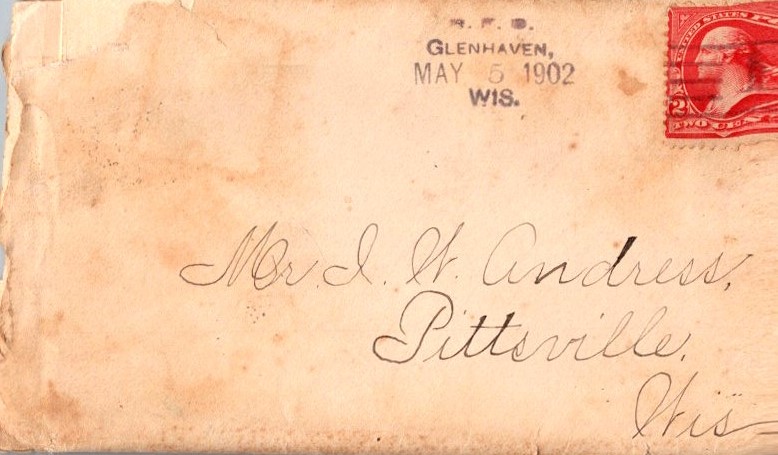 R. F. D.
GLENHAVEN,
MAY 5 1902
WIS.
UNITED STATES PO
2
TWO CEN
Mr. I. W. Andress,
Pittsville,
Wis